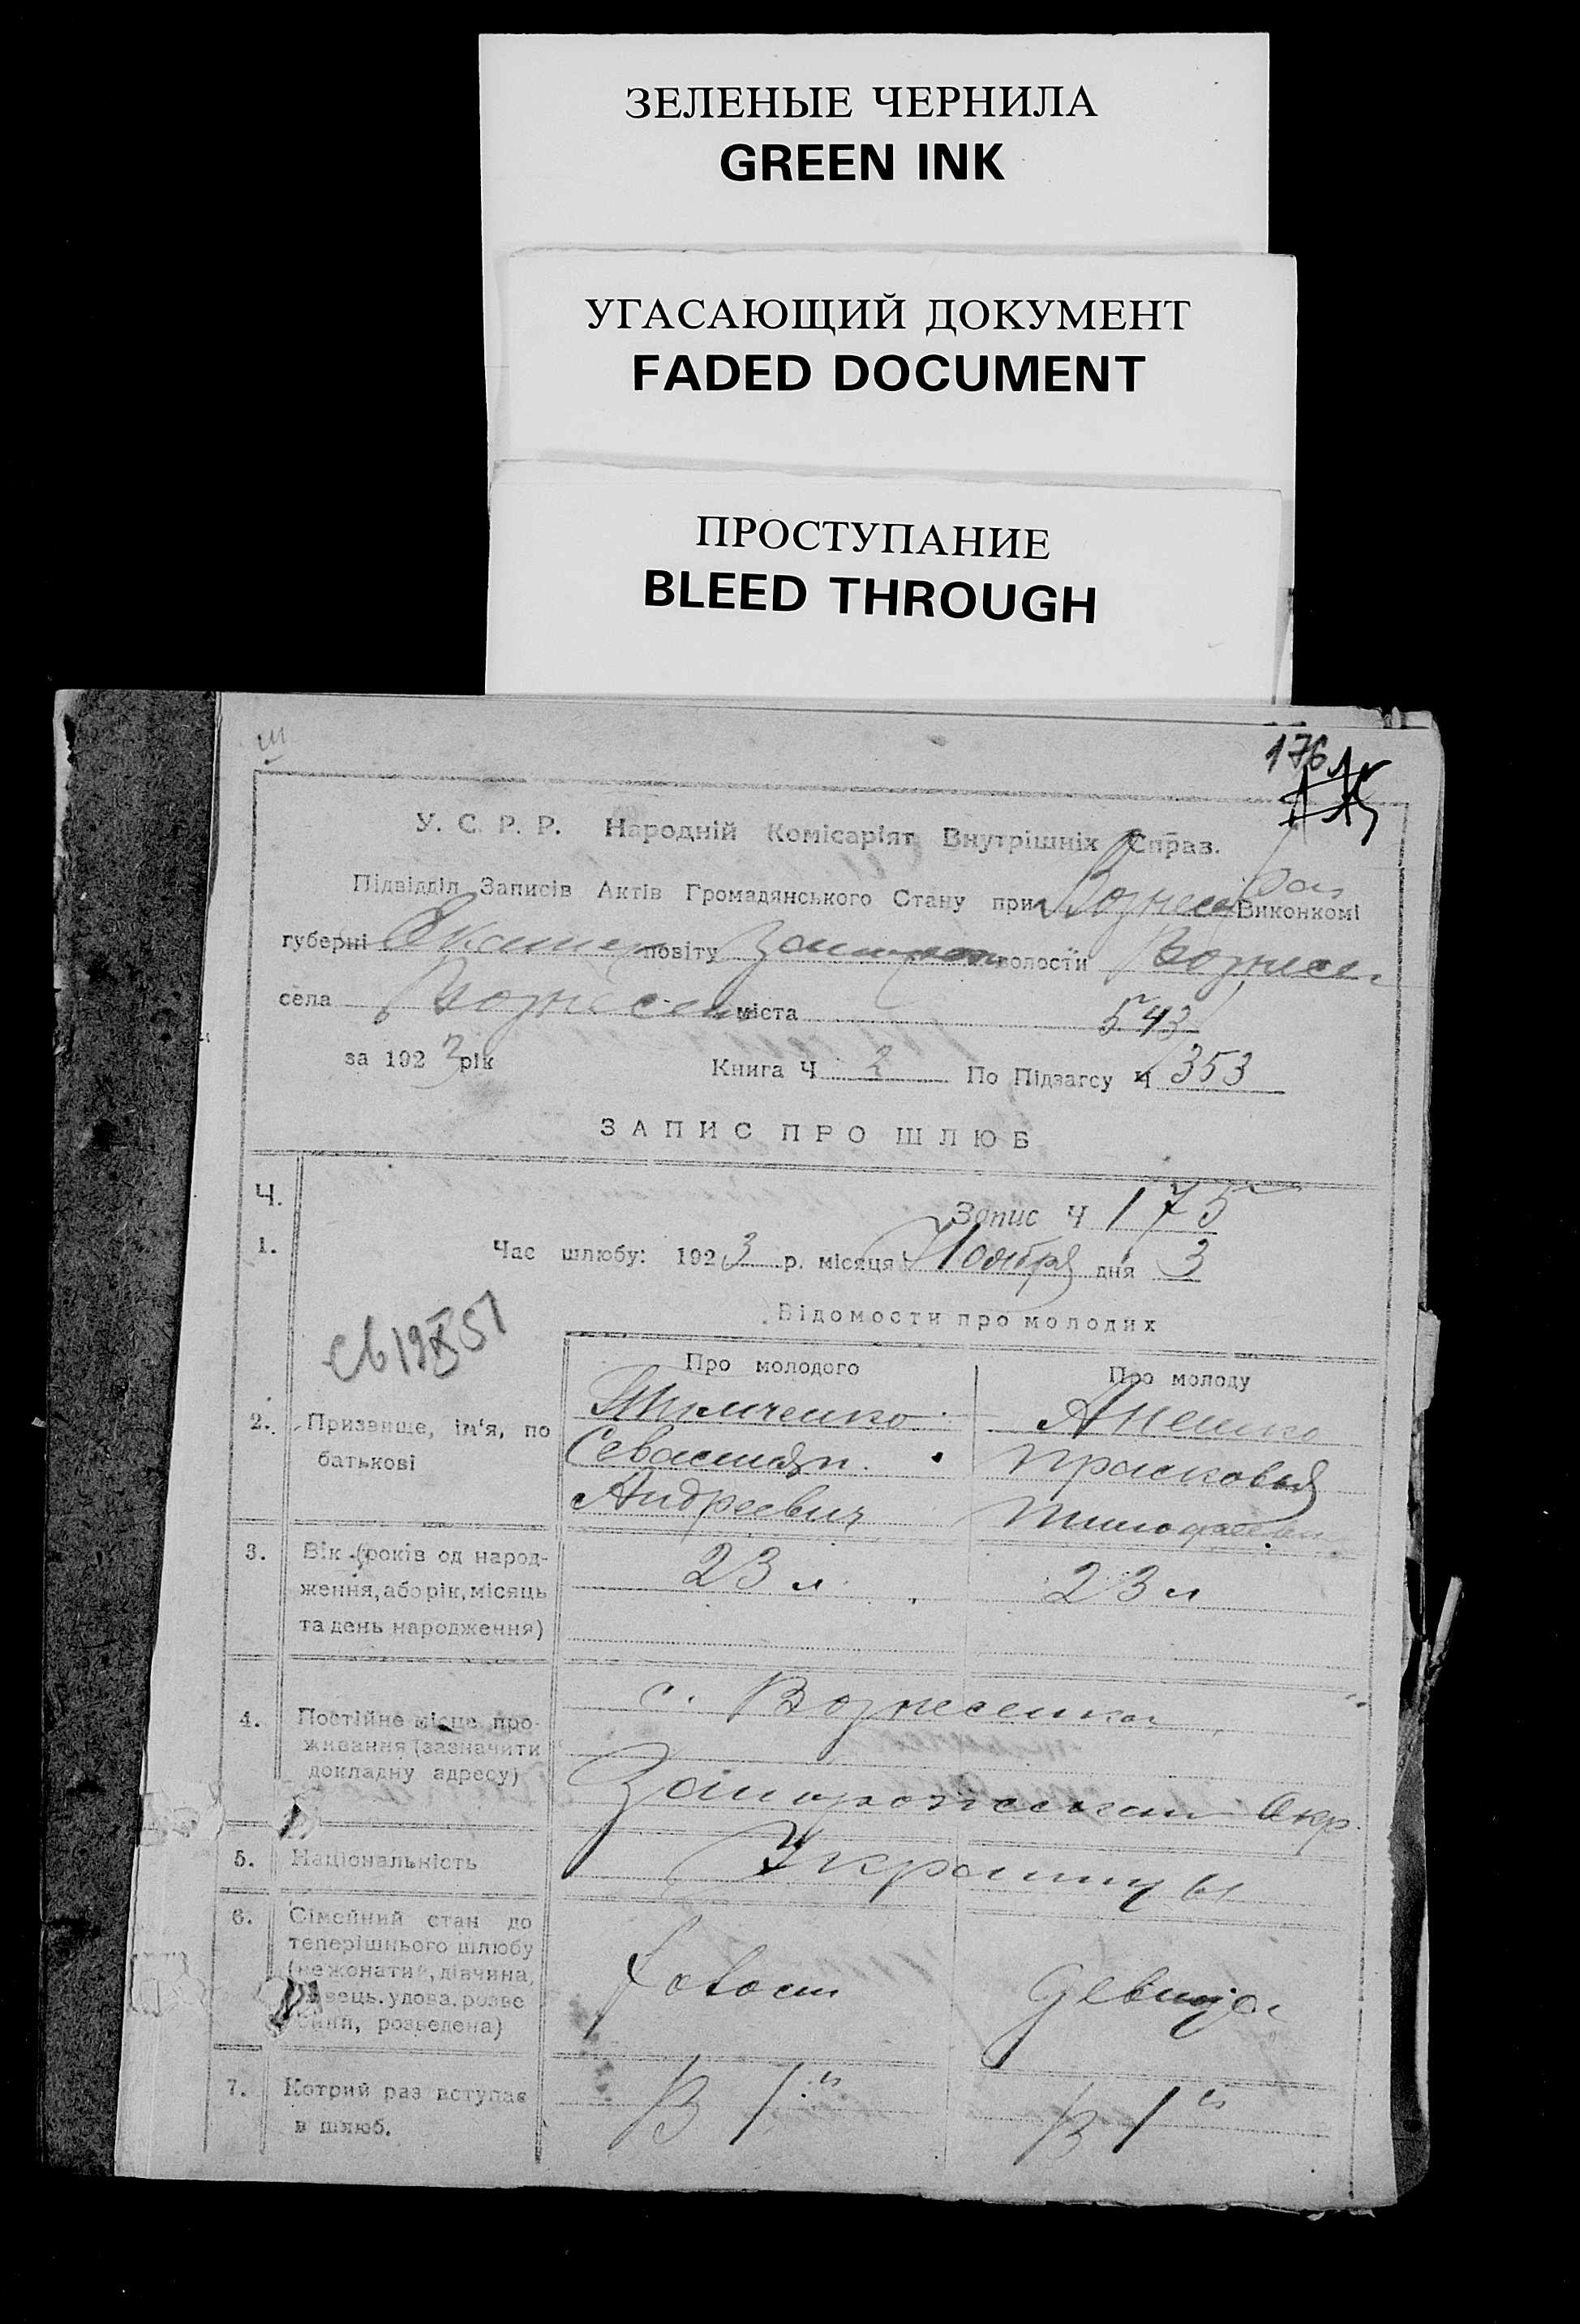 ЗЕЛЕНЫЕ ЧЕРНИЛА
GREEN INK
УГАСАЮЩИЙ ДОКУМЕНТ
FADED DOCUMENT
ПРОСТУПАНИЕ
BLEED THROUGH
176
У. С. Р. Р. Народній Комісаріят Внутрішніх Справ.
Підвідділ Записів Актів Громадянського Стану при Вознесен Рай Виконкомі
губерні Екатер повіту Запорож волости Вознесен
села Вознесен міста
543
за 1923 рік Книга Ч 2 По Підзагсу Ч 353
ЗАПИС ПРО ШЛЮБ
Ч. Запис Ч 175
1. Час шлюбу: 1923 р. місяця Ноября дня 3
Відомости про молодих
Про молодого Про молоду
2. Призвище, ім'я, по батькові
Севастьян Прасковья
Андреевич
3. Вік (років од народ-
ження, або рік, місяць
та день народження)
23 л 23 л
4. Постійне місце про-
живання (зазначити
докладну адресу)
с. Вознесенка
Запорожской Окр.
5. Національність Украинцы
6. Сімейний стан до
теперішнього шлюбу
(нежонатий, дівчина,
вдівець, удова, розве
дений, розведена)
холост девица
7. Котрий раз вступає
в шлюб.
в 1й в 1й